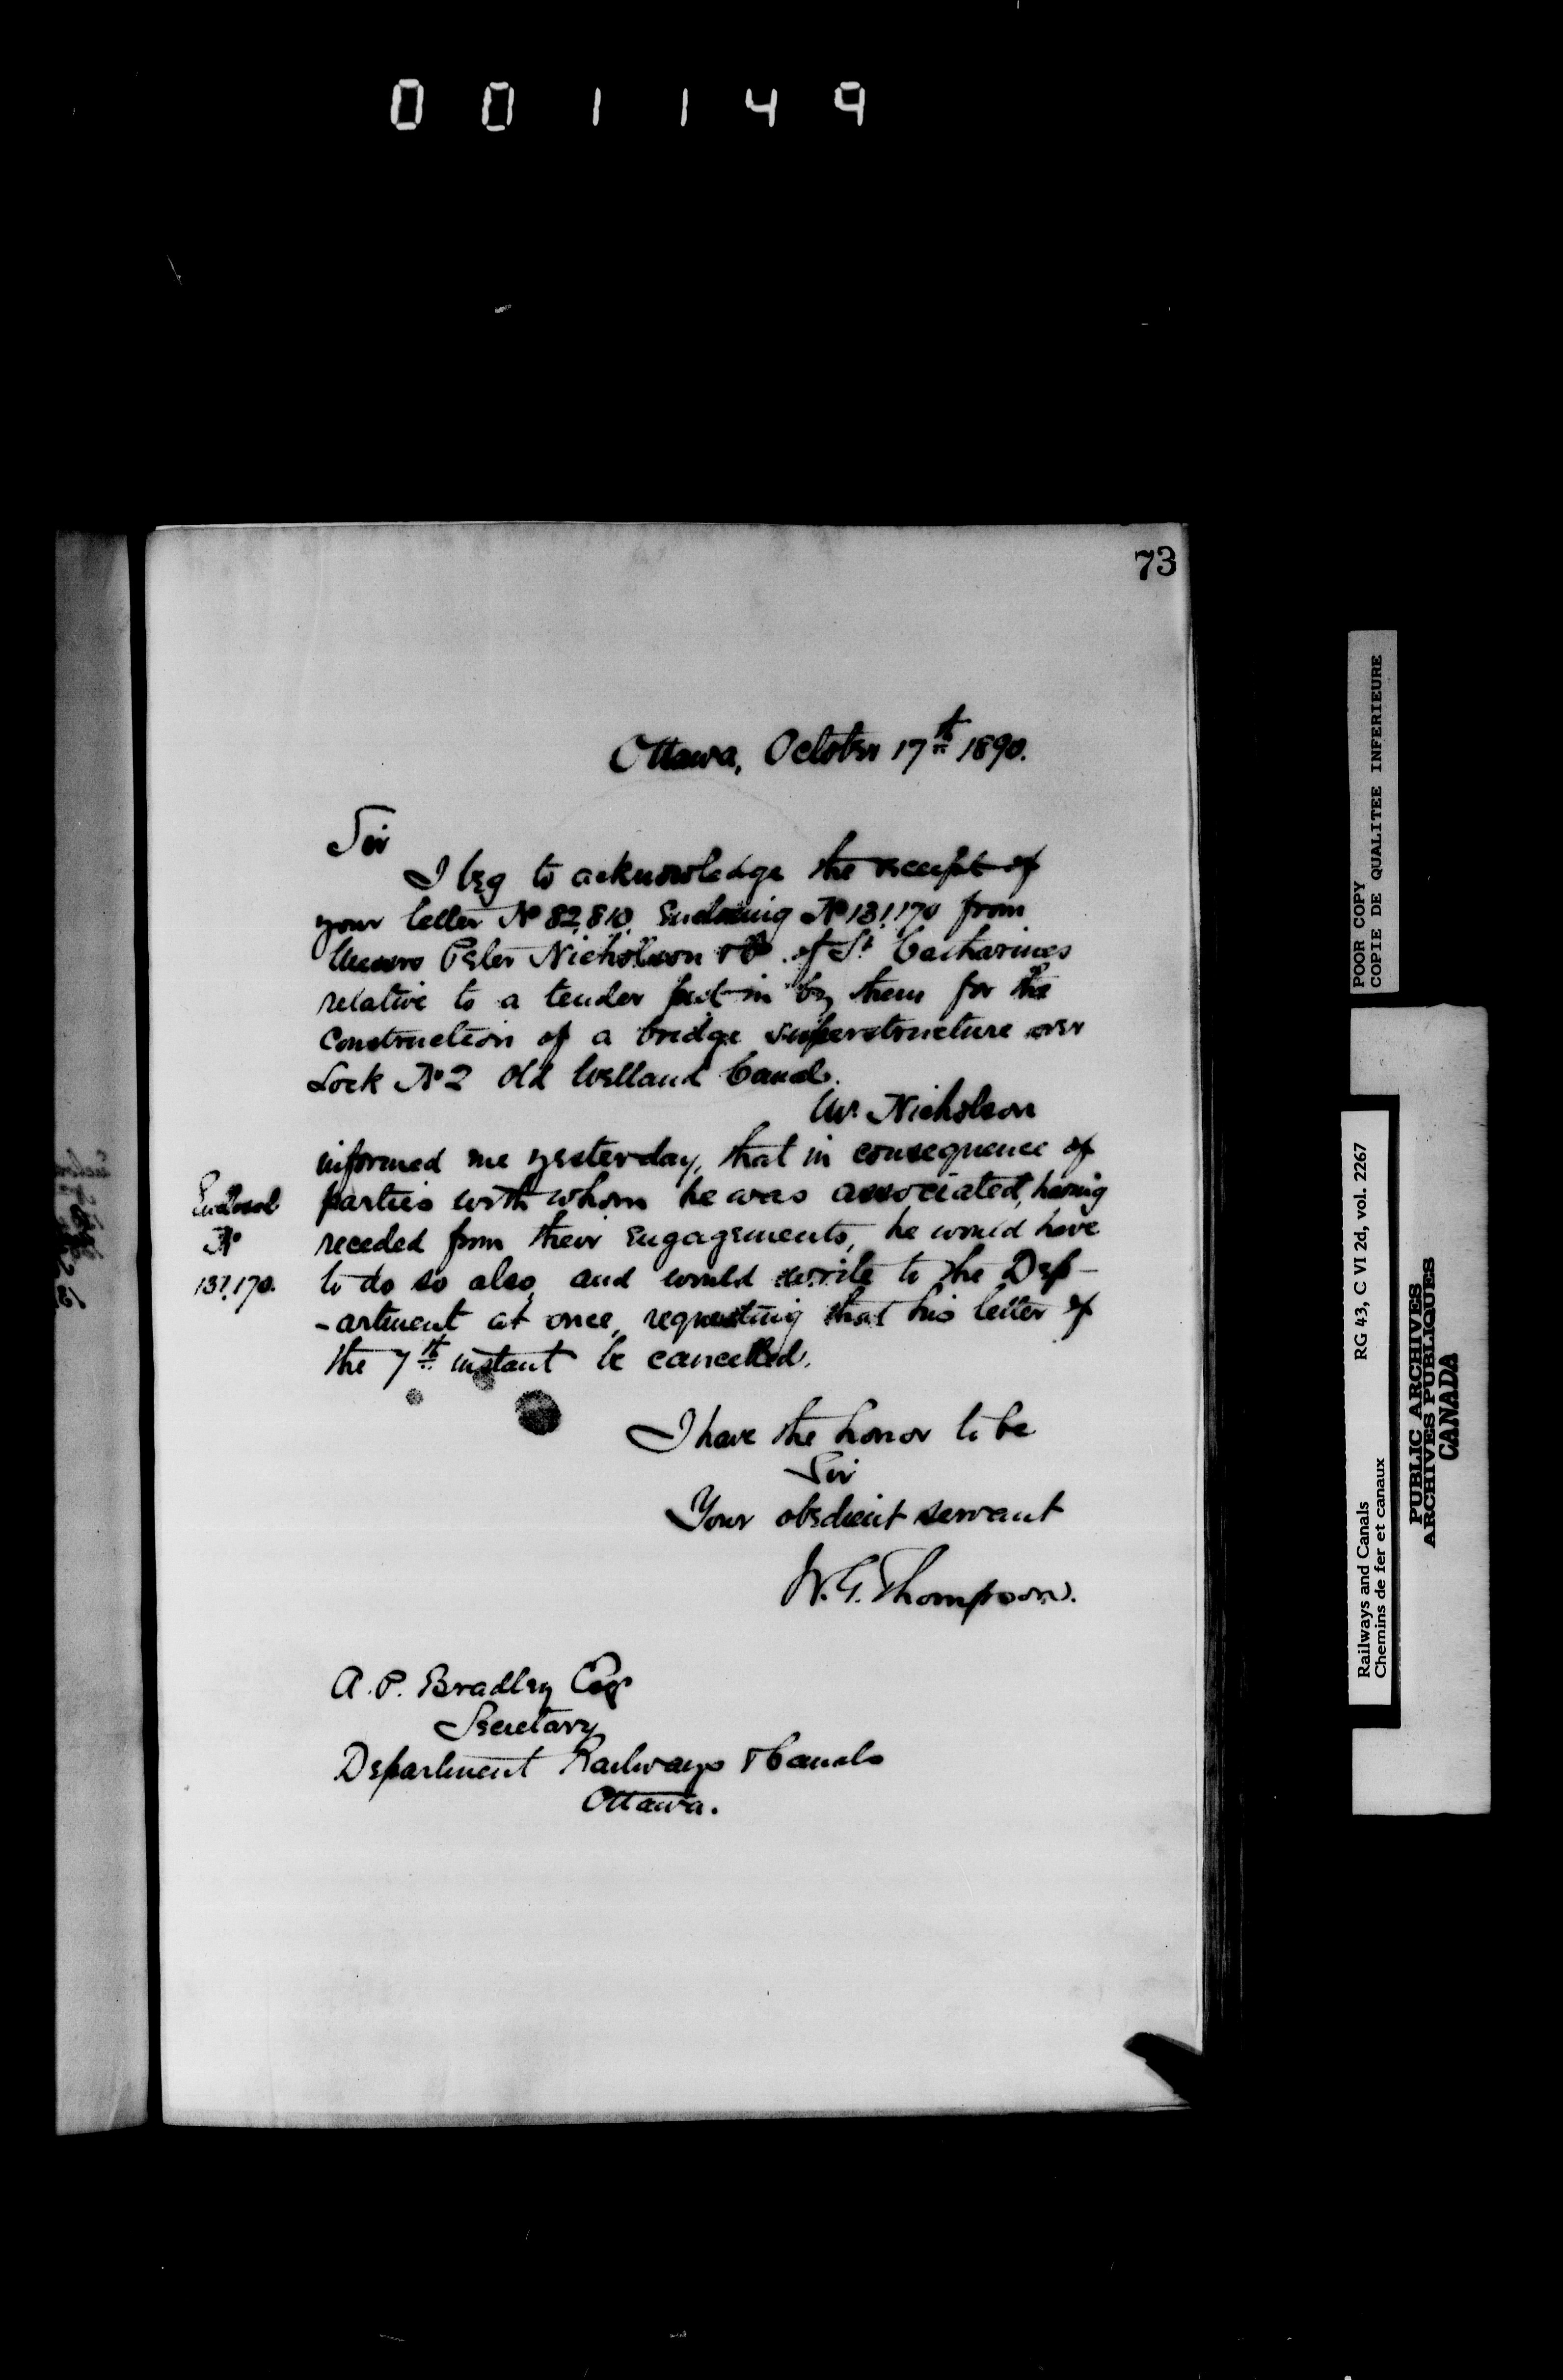 001149
73
Ottawa, October 17th 1890.
Sir
I beg to acknowledge the receipt of
your letter No 82,810, Enclosing No 131,170 from
Messrs Peter Nicholson & Co. of St. Catharines
relative to a tender put in by them for the
Construction of a bridge superstructure over
Lock No 2 Old Welland Canal.
Mr. Nicholson
informed me yesterday, that in consequence of
parties with whom he was associated, having
receded from their Engagements, he would have
to do so also, and would write to the Dep-
-artment at once, requesting that his letter of
the 7th instant be cancelled.
Enclosed
No
131,170.
I have the honor to be
Sir
Your obedient servant
W. G. Thompson.
A. P. Bradley Esqr
Secretary
Department Railways & Canals
Ottawa.
POOR COPY
COPIE DE QUALITEE INFERIEURE
Railways and Canals RG 43, C VI 2d, vol. 2267
Chemins de fer et canaux
PUBLIC ARCHIVES
ARCHIVES PUBLIQUES
CANADA